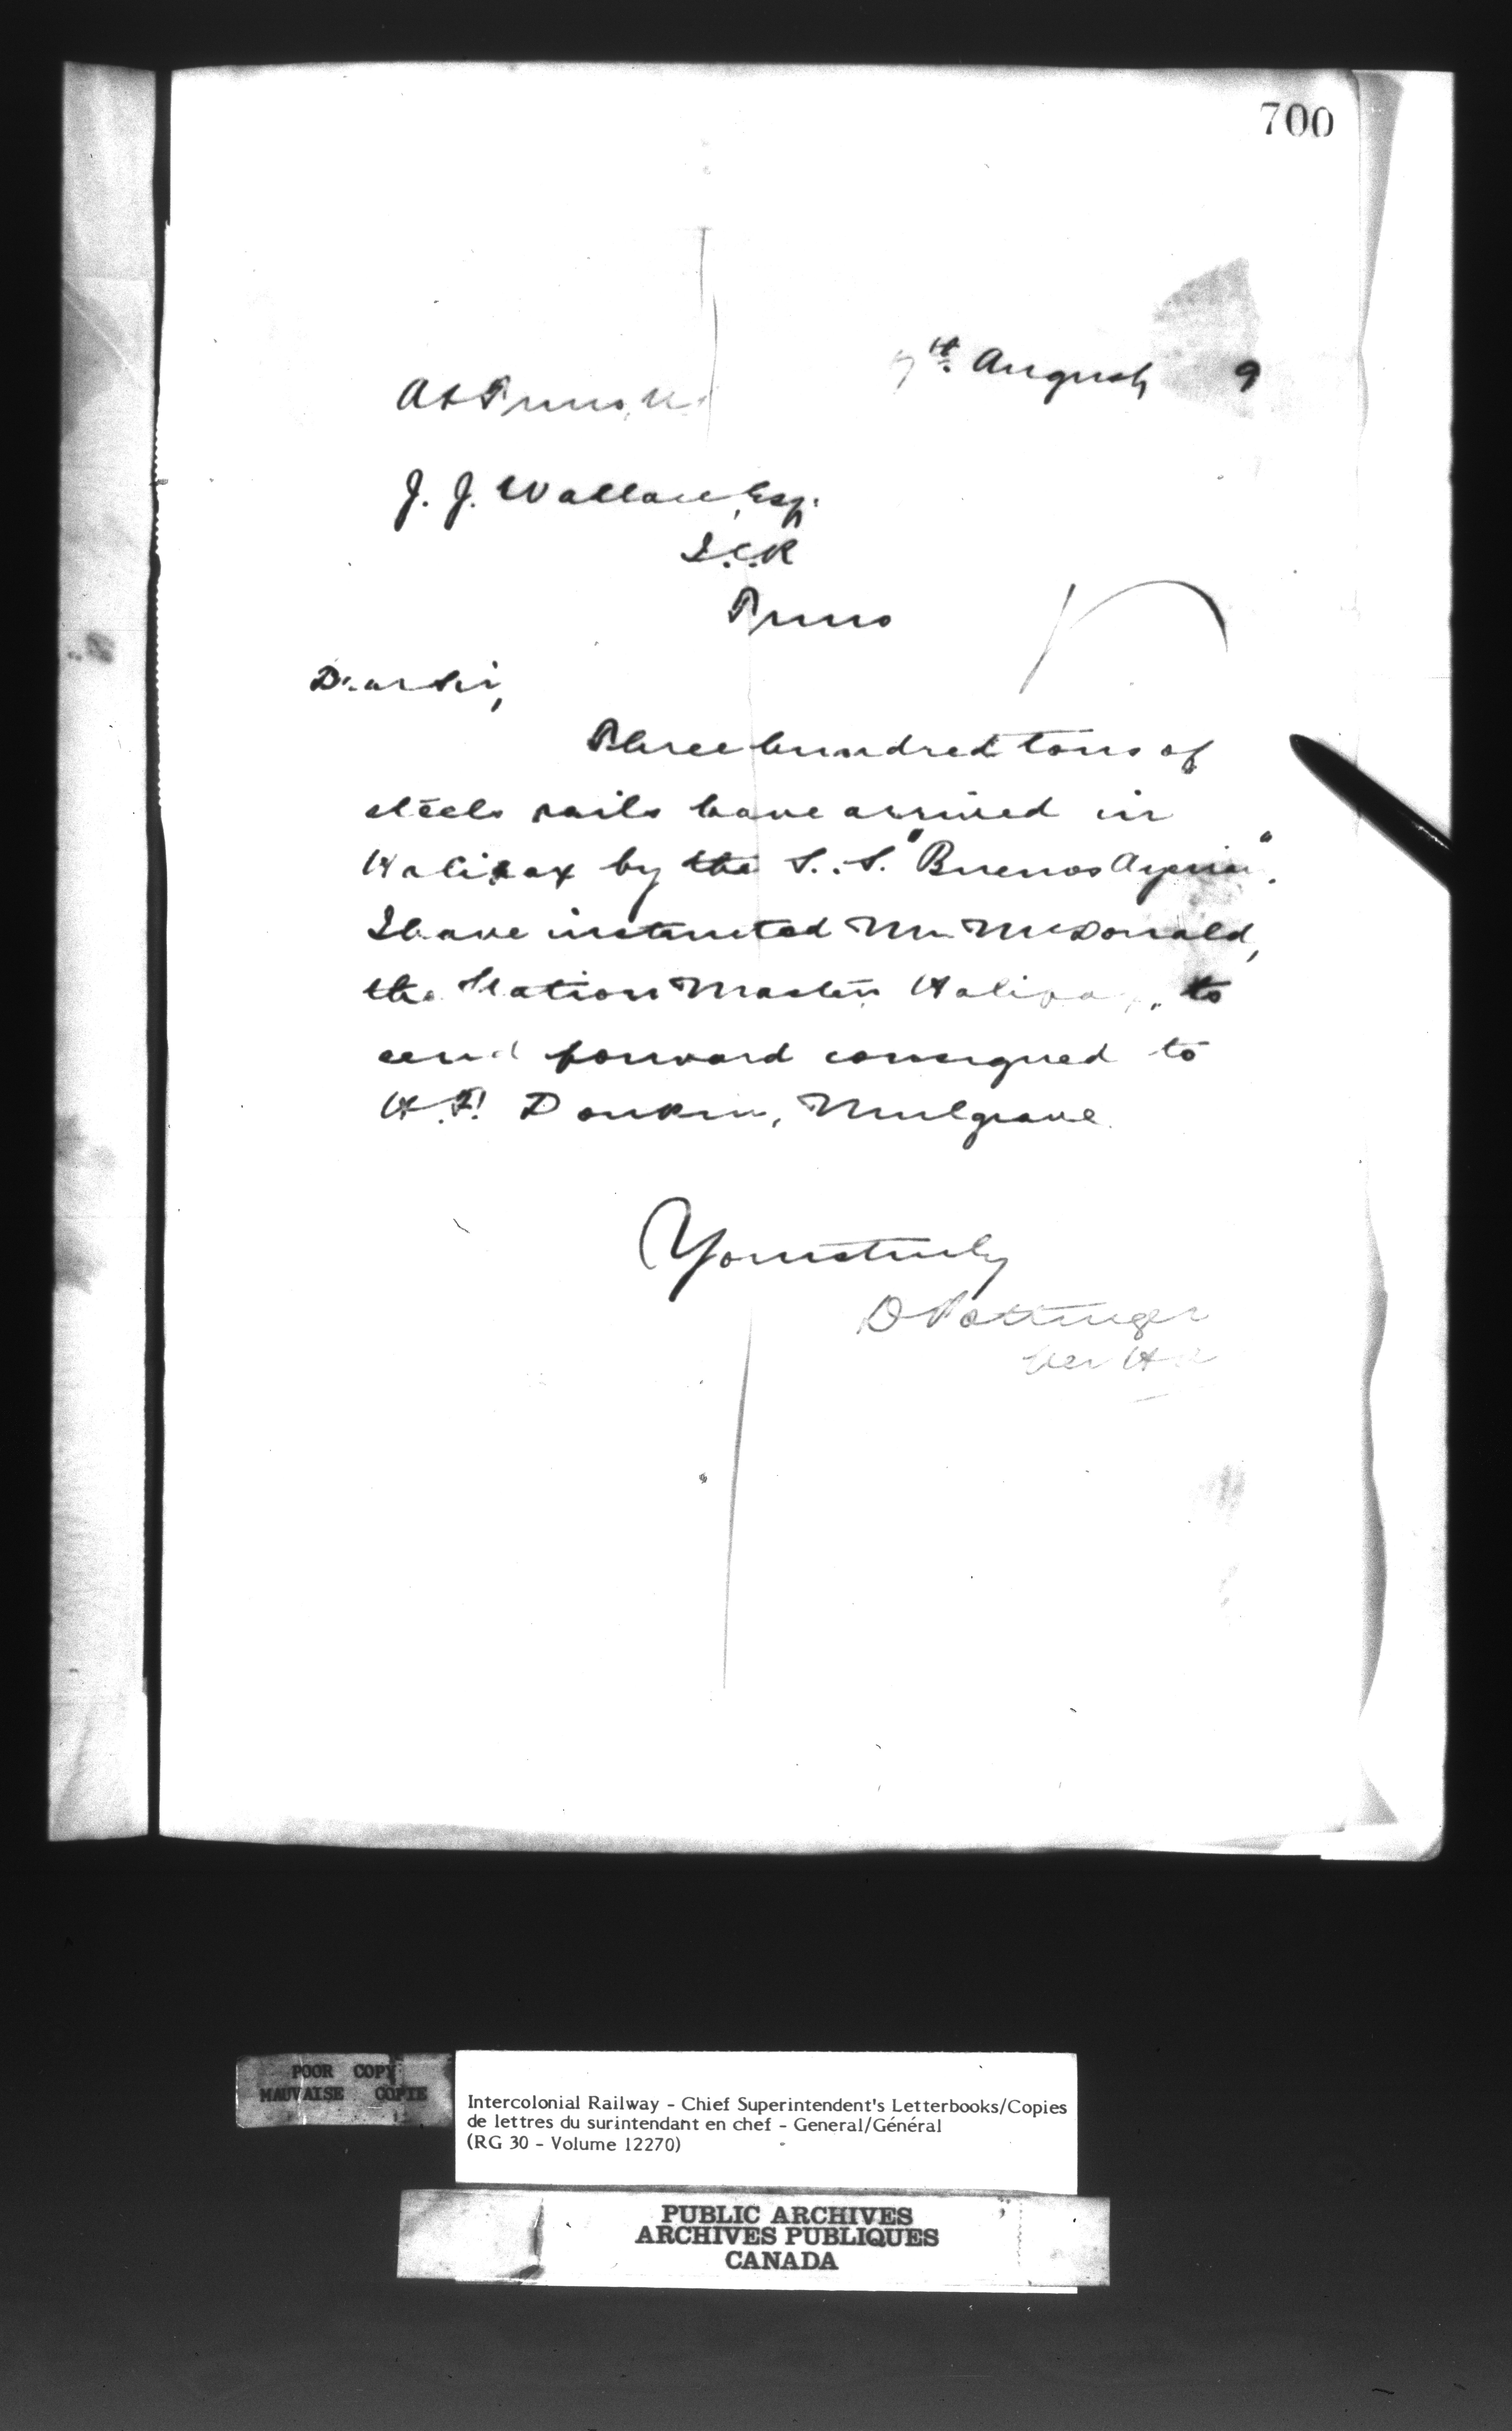 700
7th. August 9
At Truro, N.
J. J. Wallace, Esq.
I.C.R
Truro
Dear Sir,
Three hundred tons of
steele rails have arrived in
Halifax by the S.S. "Buenos Ayrian".
I have instructed Mr. McDonald,
the Station Master Halifax, to
send forward consigned to
H. F. Donkin, Mulgrave.
Yours truly
D Pottinger
Per
POOR COPY
MAUVAISE COPIE
Intercolonial Railway - Chief Superintendent's Letterbooks/Copies
de lettres du surintendant en chef - General/Général
(RG 30 - Volume 12270)
PUBLIC ARCHIVES
ARCHIVES PUBLIQUES
CANADA